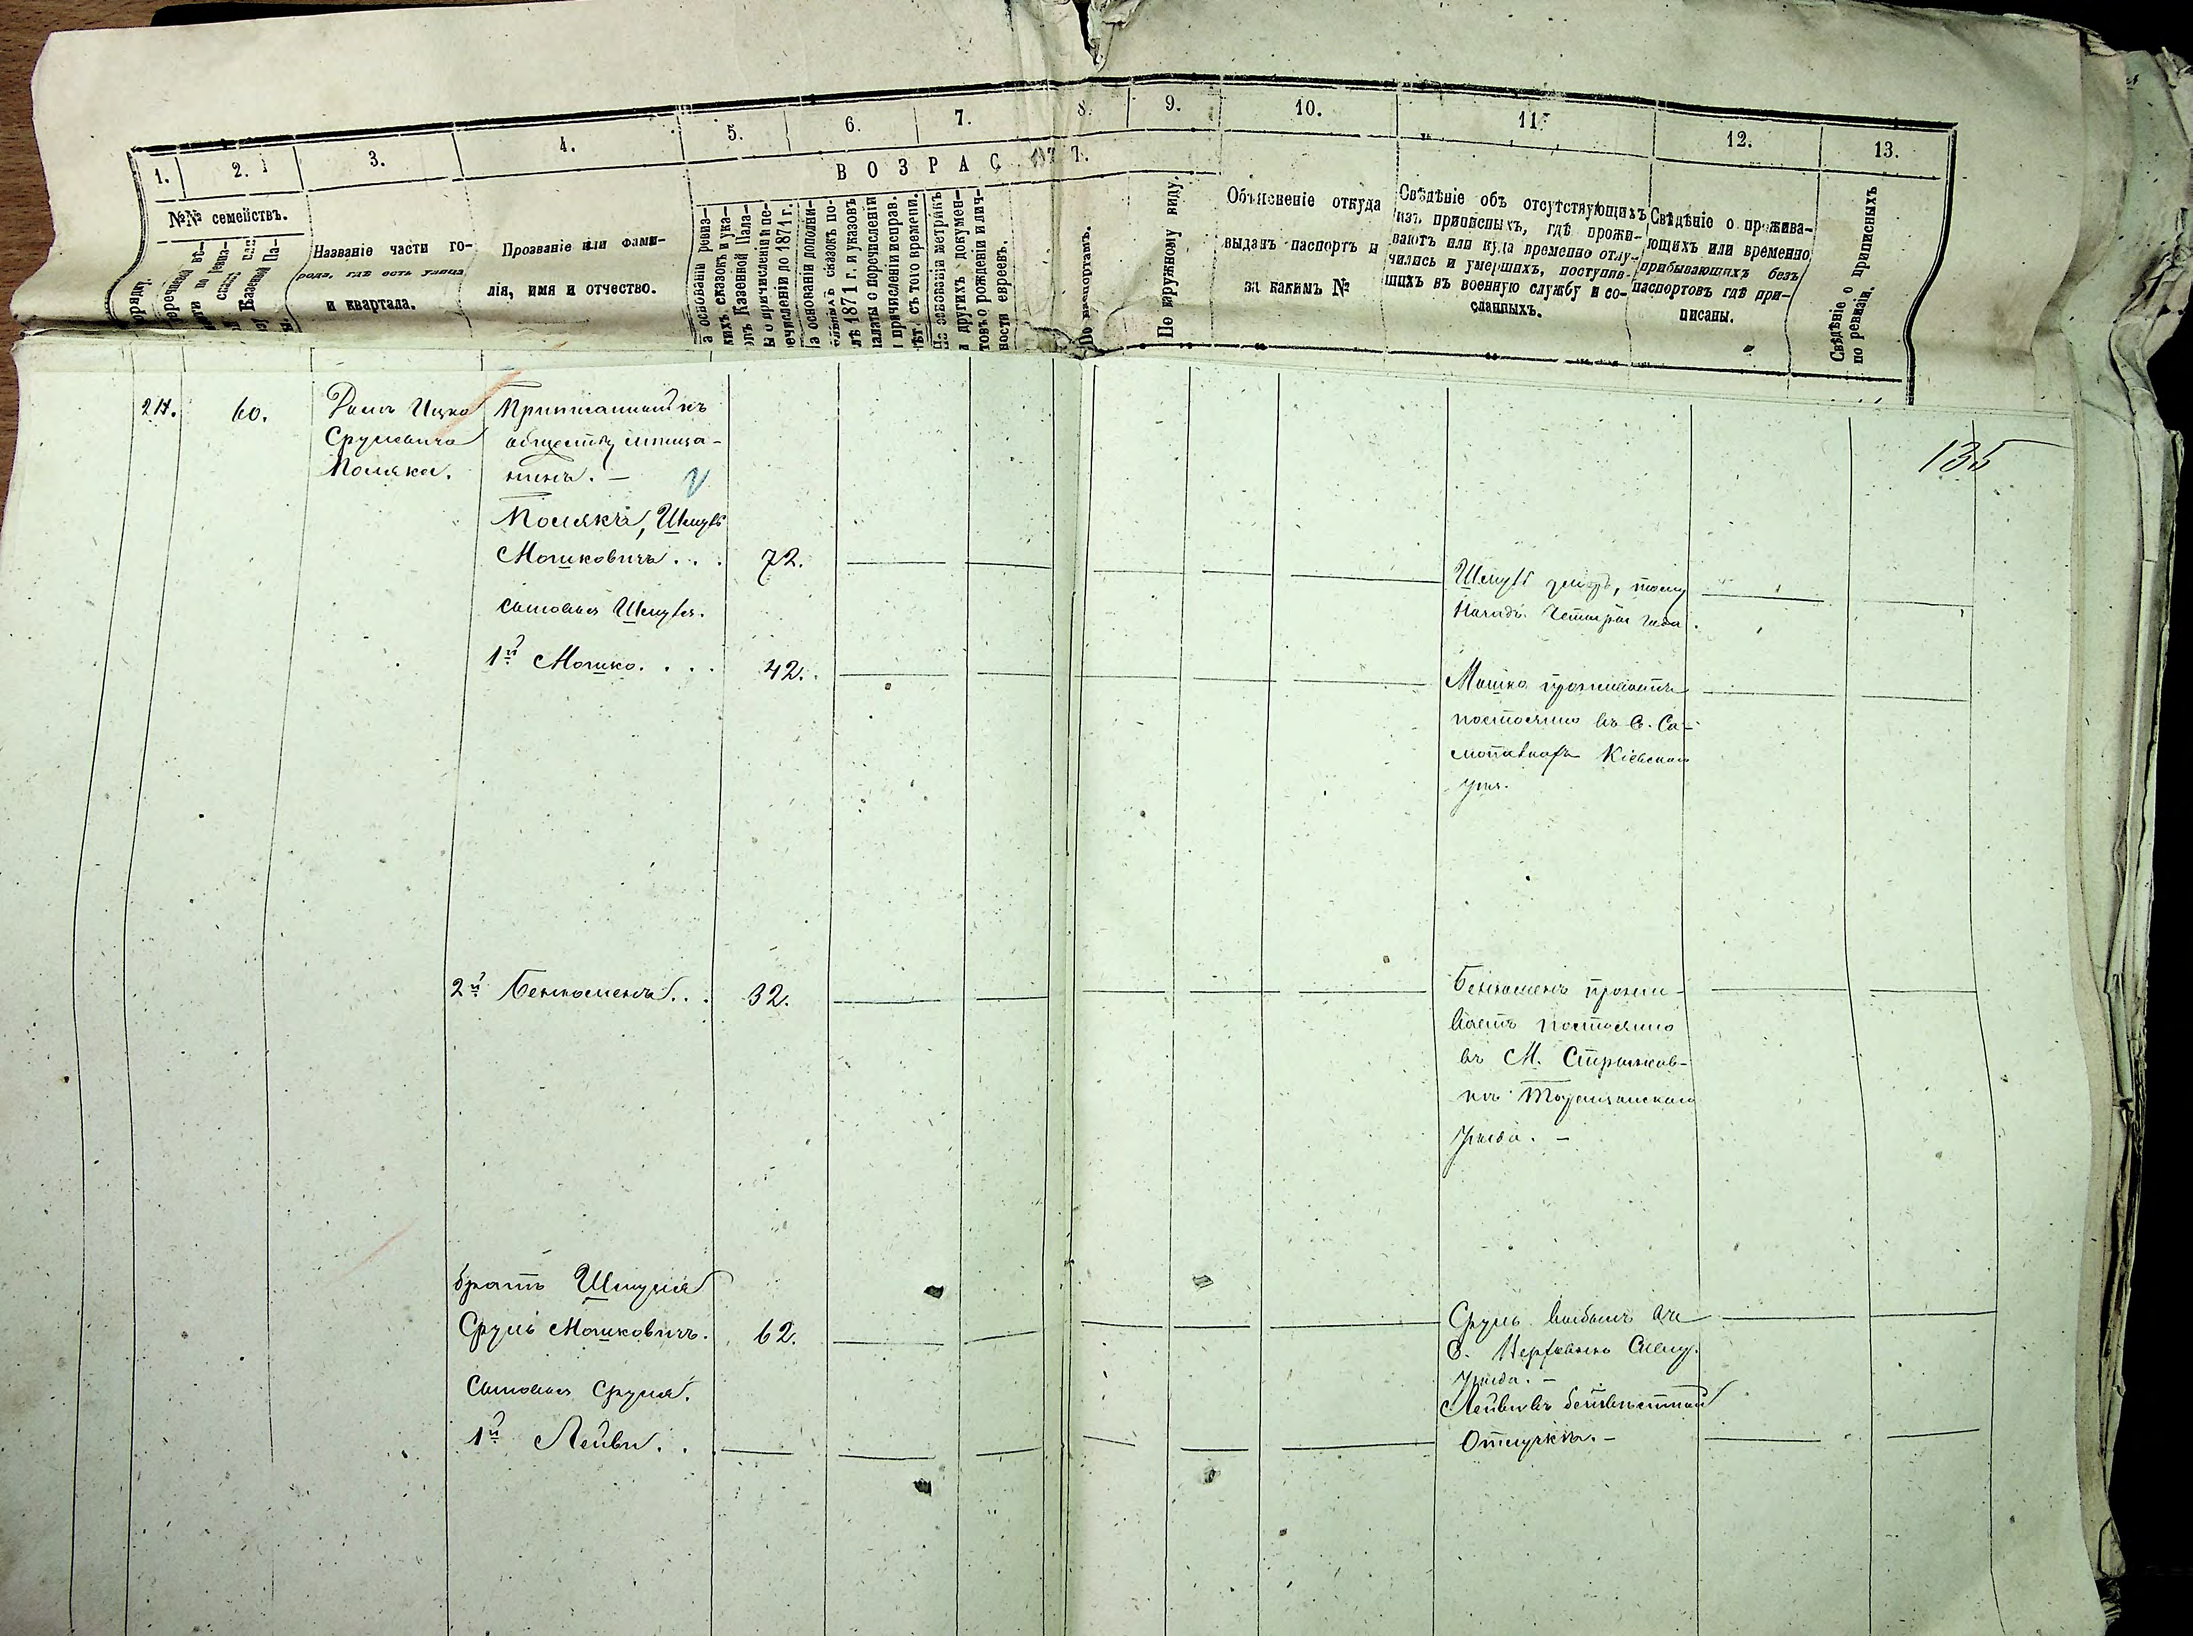 1.
2.
3.
4.
5.
6.
7.
8.
9.
10.
11.
12.
13.
ВОЗРАСТ
№№ семействъ.
Названіе части го-
рода, гдѣ есть улица
и квартала.
Прозваніе или фами-
лія, имя и отчество.
На основаніи ревиз-
скихъ сказокъ и ука-
зовъ Казенной Пала-
ты о причисленіи и пе-
речисленіи до 1871 г.
На основаніи дополни-
тельныхъ сказокъ по-
слѣ 1871 г. и указовъ
палаты о перечисленіи
и причисленіи исправ.
лѣт съ того времени.
На основаніи метрикъ
и другихъ докумен-
товъ о рожденіи и лич-
ности евреевъ.
По паспортамъ.
По наружному виду.
Объясненіе откуда
выданъ паспортъ и
за какимъ №
Свѣдѣніе объ отсутствующихъ
изъ приписныхъ, гдѣ прожи-
ваютъ или куда временно отлу-
чились и умершихъ, поступив-
шихъ въ военную службу и со-
сланныхъ.
Свѣдѣніе о прожива-
ющихъ или временно
прибывающихъ безъ
паспортовъ гдѣ при-
писаны.
Свѣдѣніе о приписныхъ
по ревизіи.
135
217.
60.
Домъ Ицко
Срулевича
Поляка.
обществу мѣща-
нинъ. —
Полякъ, Шмуль
Мошковичъ . . .
72.
Шмуль умеръ, тому
Назадъ Четыри года.
сыновья Шмуля.
1й Мошко. . . .
42.
Мошко проживаетъ
постоянно въ С. Са-
Кіевскаго
2й Беньоменъ. . .
32.
Беньоменъ прожи-
ваетъ постоянно
въ М. Стрыжев-
кѣ Таращанскаго
уѣзда. —
братъ Шмуля
Сруль Мошковичъ.
62.
Сруль выбылъ въ
С.
уѣзда. —
Сыновья Сруля.
1й Лейви. .
Лейви въ безъвѣстной
Отлучкѣ. —